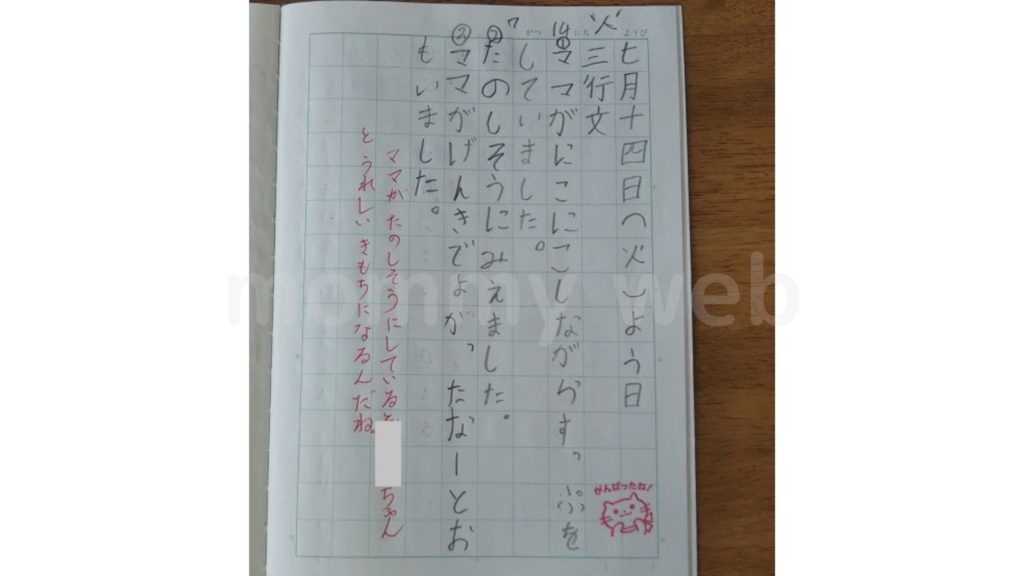 7がつ14にち火ようび
七月十四日(火)よう日
三行文
①ママがにこにこしながらすっぷを
していました。
②たのしそうにみえました。
③ママがげんきでよがったなーとお
もいました。
ママがたのしそうにしていると ちゃん
と うれしいきもちになるんだね。
がんばったね!
mommy web